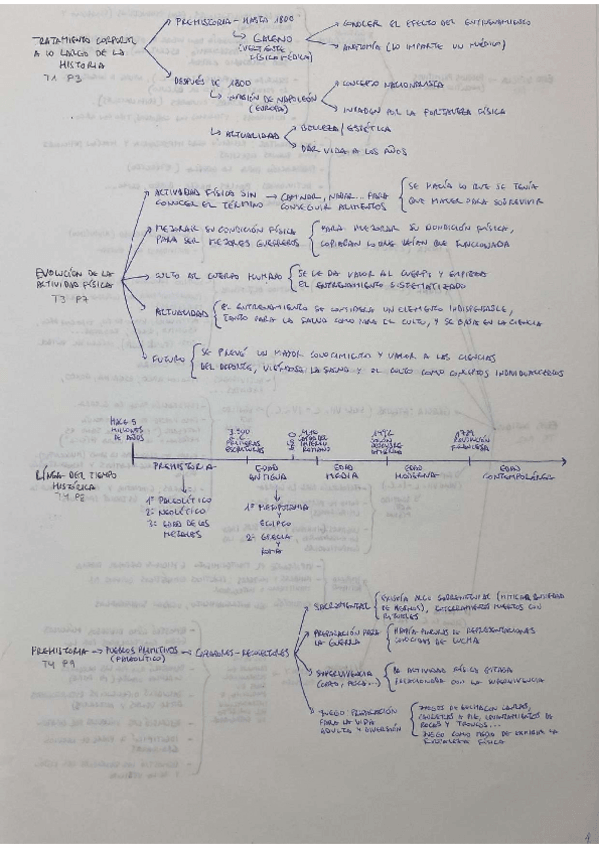 PREHISTORIA - HASTA 1800
GALENO
(VERTIENTE FÍSICA/MÉDICA)
CONOCER EL EFECTO DEL ENTRENAMIENTO
ANATOMÍA (LO IMPARTE UN MÉDICO)
TRATAMIENTO CORPORAL
A LO LARGO DE LA
HISTORIA
T1 P3
DESPUÉS DE 1800
INVASIÓN DE NAPOLEÓN
(EUROPA)
CONCEPTO NACIONALISTA
INVADEN POR LA FORTALEZA FÍSICA
ACTUALIDAD
BELLEZA/ESTÉTICA
DAR VIDA A LOS AÑOS
EVOLUCIÓN DE LA
ACTIVIDAD FÍSICA
T3 P7
ACTIVIDAD FÍSICA SIN
CONOCER EL TÉRMINO
CAMINAR, NADAR... PARA
CONSEGUIR ALIMENTOS
SE HACÍA LO QUE SE TENÍA
QUE HACER PARA SOBREVIVIR
MEJORAR SU CONDICIÓN FÍSICA
PARA SER MEJORES GUERREROS
PARA MEJORAR SU CONDICIÓN FÍSICA,
COPIABAN LO QUE VEÍAN QUE FUNCIONABA
CULTO AL CUERPO HUMANO
SE LE DA VALOR AL CUERPO Y EMPIEZA
EL ENTRENAMIENTO SISTEMATIZADO
ACTUALIDAD
EL ENTRENAMIENTO SE CONSIDERA UN ELEMENTO INDISPENSABLE,
TANTO PARA LA SALUD COMO PARA EL CULTO, Y SE BASA EN LA CIENCIA
FUTURO
SE PREVÉ UN MAYOR CONOCIMIENTO Y VALOR A LAS CIENCIAS
DEL DEPORTE, VIÉNDOSE LA SALUD Y EL CULTO COMO CONCEPTOS INDIVIDUALIZADOS
LÍNEA DEL TIEMPO
HISTÓRICA
T4 P8
HACE 5
MILLONES
DE AÑOS
3.500
A.C.
PRIMERAS
ESCRITURAS
0
476
CAÍDA DEL
IMPERIO
ROMANO
1492
COLÓN
DESCUBRE
AMÉRICA
1789
REVOLUCIÓN
FRANCESA
PREHISTORIA
EDAD
ANTIGUA
EDAD
MEDIA
EDAD
MODERNA
EDAD
CONTEMPORÁNEA
1º PALEOLÍTICO
2º NEOLÍTICO
3º EDAD DE LOS
METALES
1º MESOPOTAMIA
Y
EGIPTO
2º GRECIA
Y
ROMA
PREHISTORIA
T4 P9
PUEBLOS PRIMITIVOS
(PALEOLÍTICO)
CAZADORES - RECOLECTORES
SACRAMENTAL
EXISTÍA ALGO SOBRENATURAL
ENTERRAMIENTO MUERTOS CON
RITUALES
PREPARACIÓN PARA
LA GUERRA
HABÍA MURALES DE REPRESENTACIONES
LUCHA
SUPERVIVENCIA
(CAZA, PESCA...)
LA ACTIVIDAD FÍSICA ESTABA
RELACIONADA CON LA SUPERVIVENCIA
JUEGO PREPARACIÓN
PARA LA VIDA
ADULTA Y DIVERSIÓN
JUEGOS DE LUCHA CON LANZAS,
CARRERAS A PIE, LEVANTAMIENTOS DE
ROCAS Y TRONCOS...
JUEGO COMO MODO DE EXHIBIR LA
FORTALEZA FÍSICA